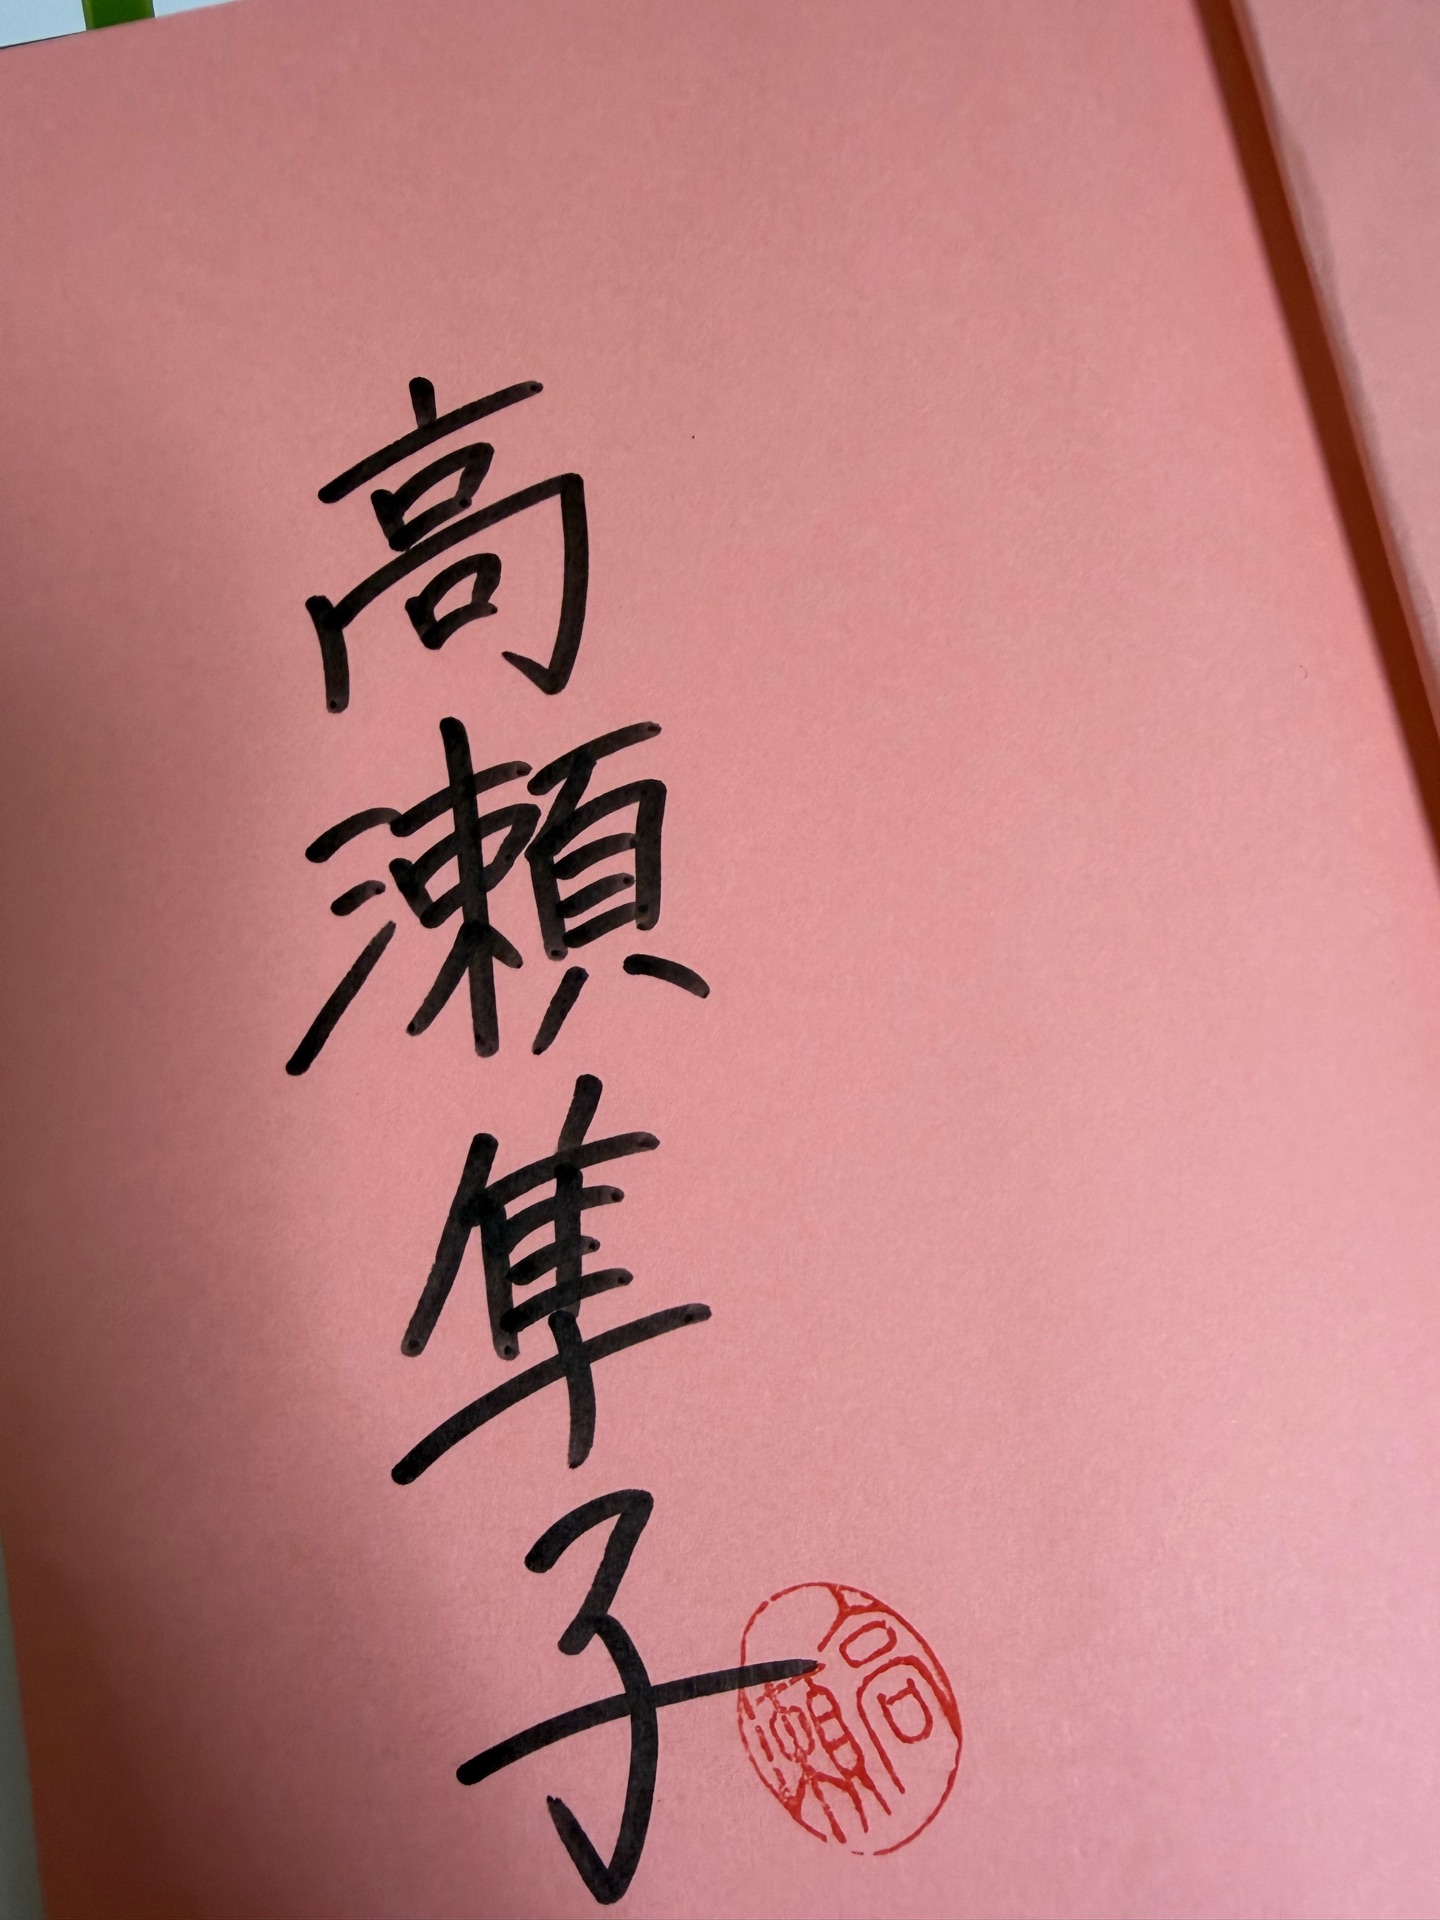 高瀬隼子
高瀬